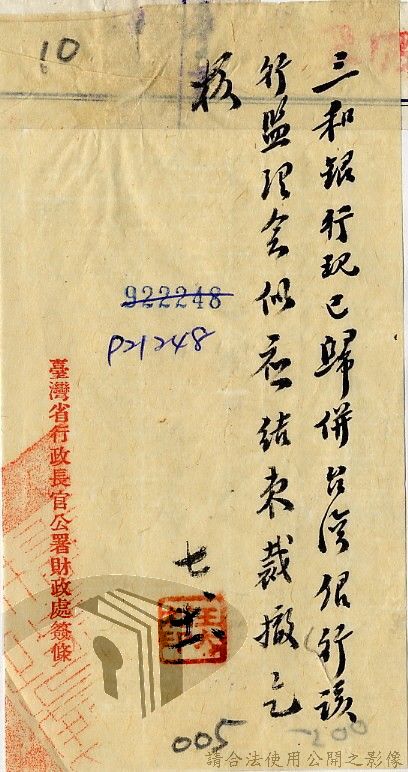 10
三和銀行現已歸併台灣銀行該
行監理会似應結束裁撤乞
核
922248
P21248
臺灣省行政長官公署財政處簽條
七、
005
請合法使用公開之影像